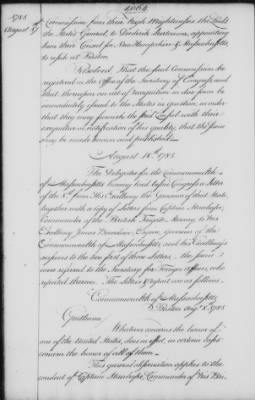 1785
August 17
a Commission from their High Mightinesses the Lords
the States General, to Diederik Leertouwer, appointing
him their Consul for New Hampshire & Massachusetts,
to reside at Boston.
Resolved That the said Commission be
registered in the Office of the Secretary of Congress, and
that thereupon an act of recognition in due form be
immediately issued to the States in question, in order
that they may furnish the said Consul with their
exequatur or notification of his quality, that the same
may be made known and published.
August 18th 1785
The Delegates for the Commonwealth
of Massachusetts having laid before Congress a letter
of the 8th from His Excellency the Governor of that State
together with a copy of Letters from Captain Stanhope
Commander of the British Frigate Mercury to his
Excellency James Bowdoin, Esquire, governor of the
Commonwealth of Massachusetts, and his Excellency's
answers to the two first of these Letters. the same
were referred to the Secretary for Foreign affairs, who
reported thereon. The Letters & report are as follows.
Commonwealth of Massachusetts
Boston Aug 8th 1785
Gentlemen
Whatever concerns the honor of
one of the United States, does in effect, in certain degree
concern the honor of all of them.
This general observation applies to the
conduct of Captain Stanhope, Commander of His Bri-